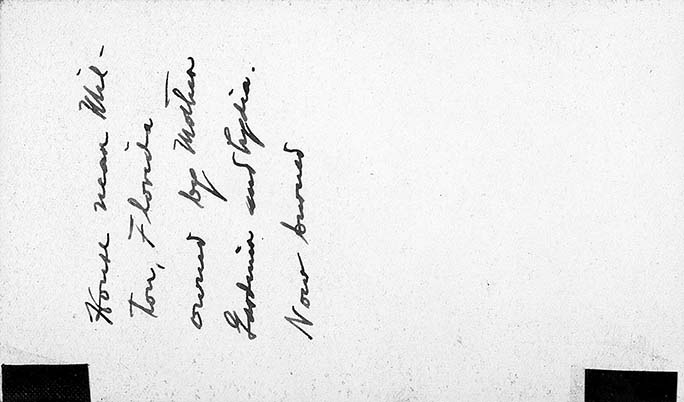 House near Mil-
ton, Florida
owned by Mother
Gardiner and Lydia.
Now burned